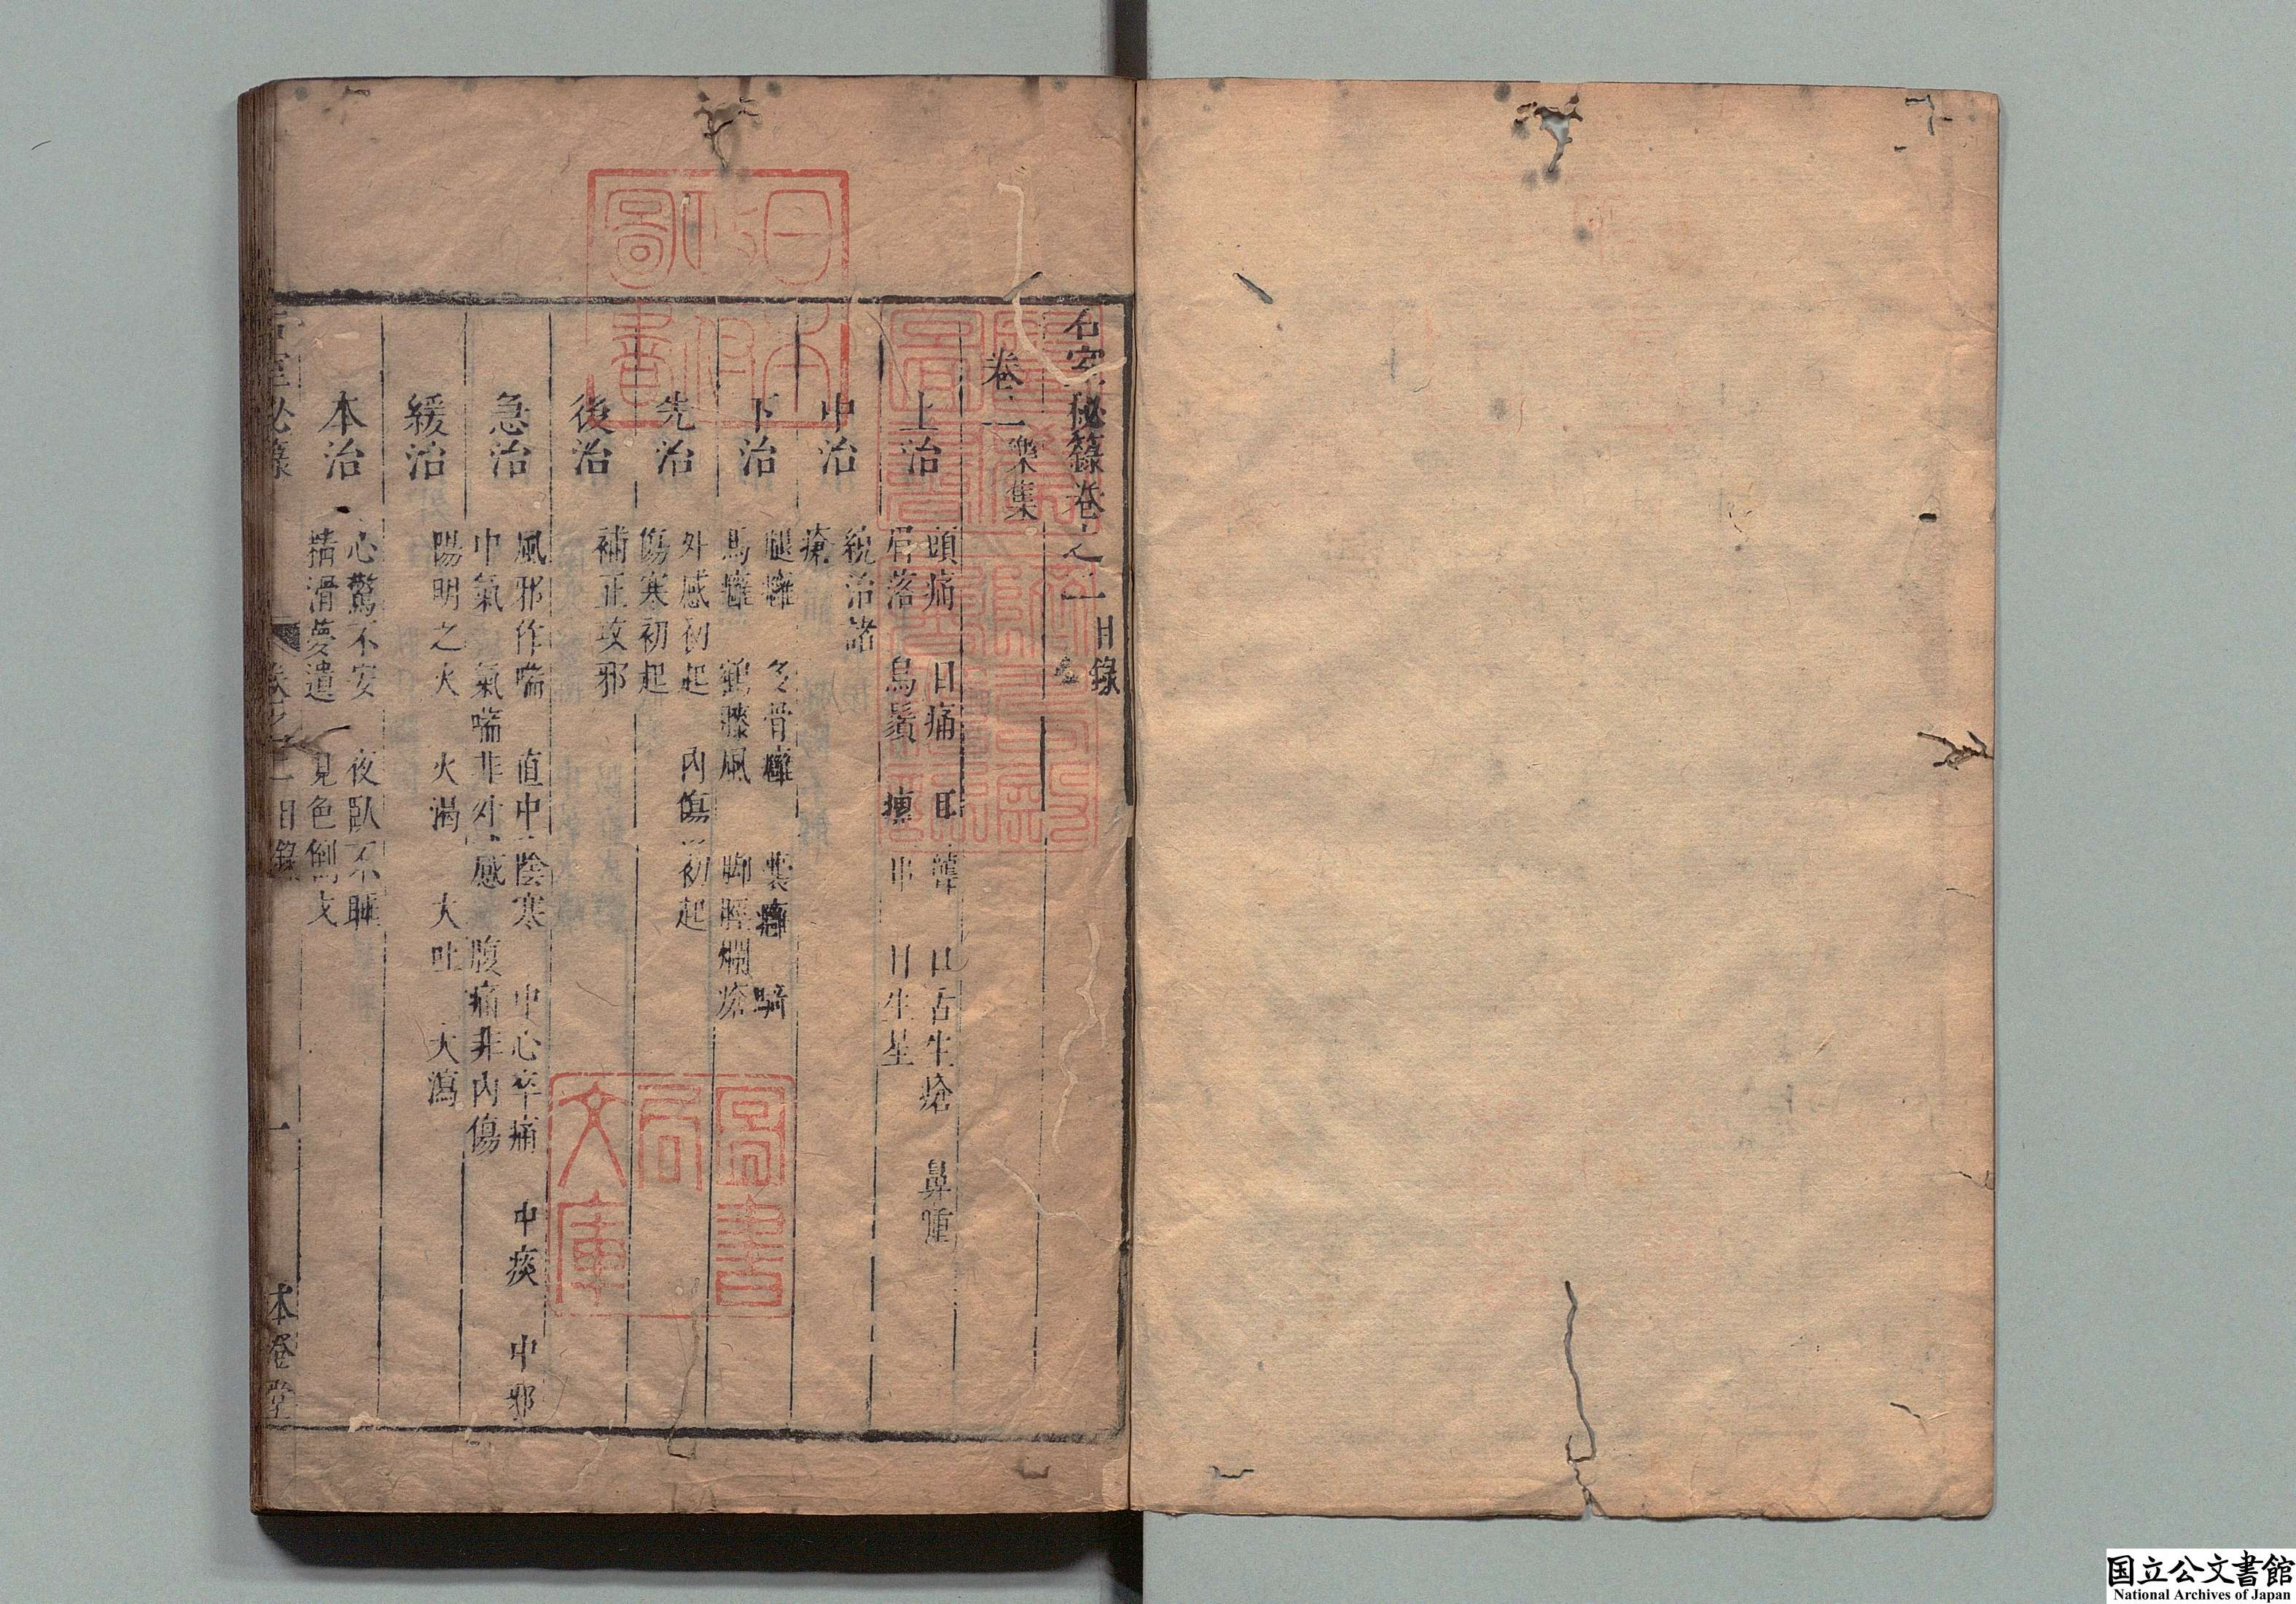 石室秘籙卷之二
目錄
卷二
樂集
上治
頭痛 目痛 耳聾 口舌生瘡 鼻重
眉落 烏鬚 瘰串 目生星
中治
統治諸
瘡
下治
腿癰 多骨癰 囊癰 騎
馬癰 鶴膝風 脚脛爛瘡
先治
外感初起 內傷初起
傷寒初起
後治
補正攻邪
急治
風邪作喘 直中陰寒 中心卒痛 中痰 中邪
中氣 氣喘非外感 腹痛非內傷
緩治
陽明之火 火渴 大吐 大瀉
本治
心驚不安 夜臥不睡
精滑夢遺 見色倒戈
石室秘籙
卷之二目錄
一
本堂
日本
政府
圖書
圖書
局
文庫
国立公文書館
National Archives of Japan